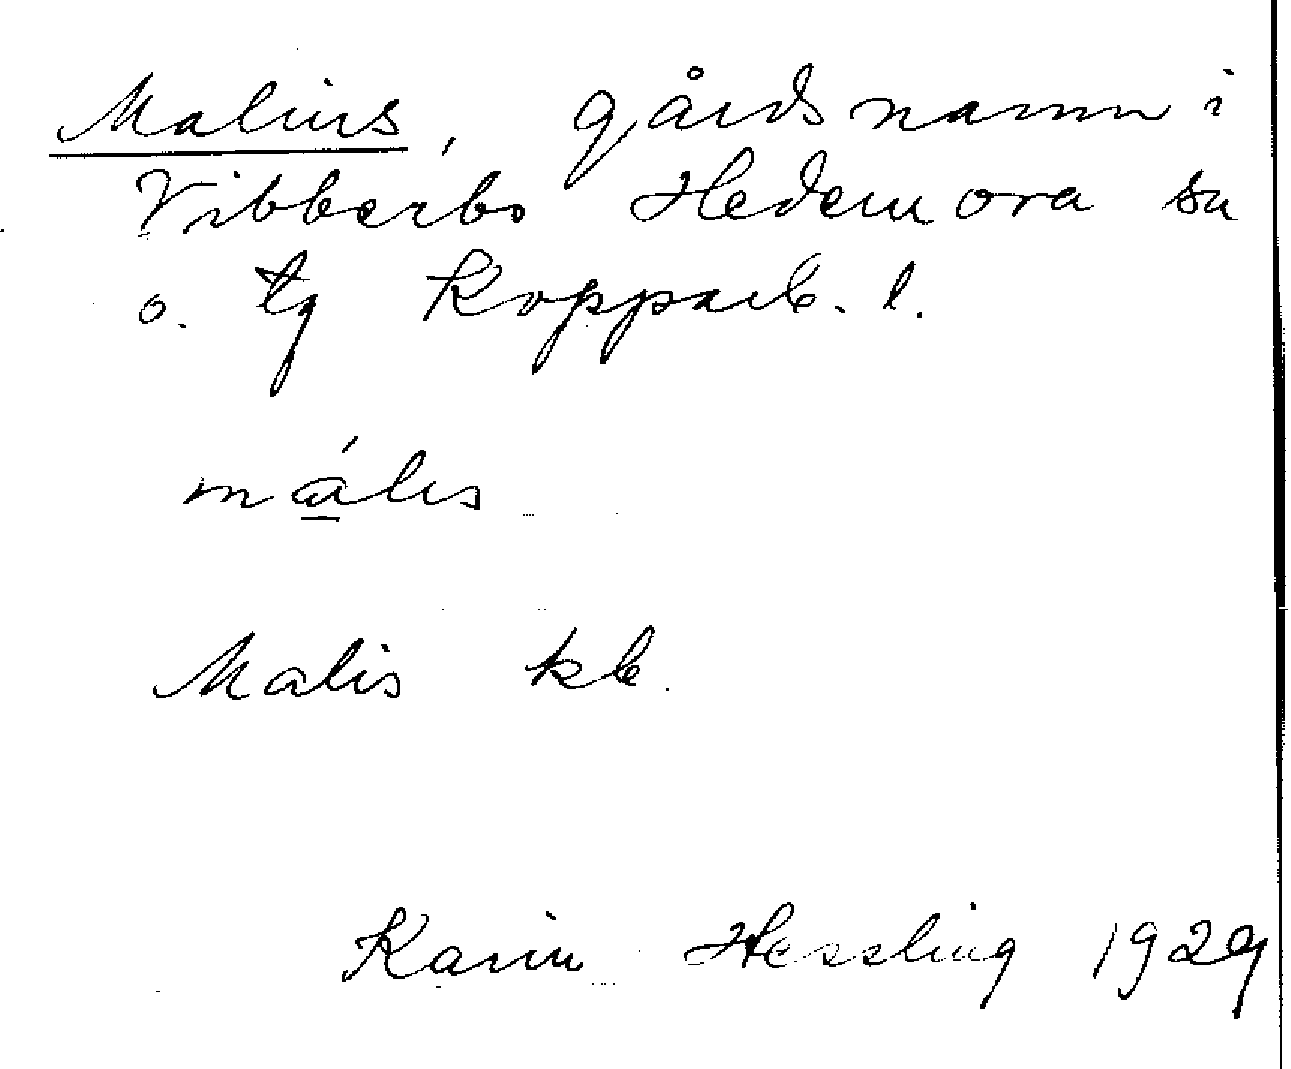 Malius, gårdsnamn i
Vibberbo Hedemora sn
o. tg Kopparb. l.
mális
Malis kb.
Karin Hessling 1929